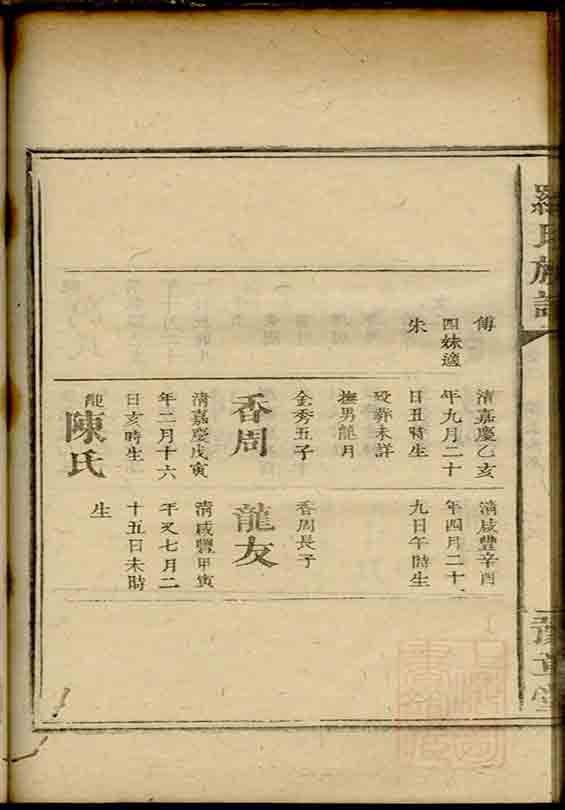 羅氏族譜
豫章堂
傅
四妹適
朱
清嘉慶乙亥
年九月二十
日丑時生
歿葬未詳
撫男龍月
金秀五子
香周
清嘉慶戊寅
年二月十六
日亥時生
陳氏
清咸豐辛酉
年四月二十
九日午時生
香周長子
龍友
清咸豐甲寅
年又七月二
十五日未時
生